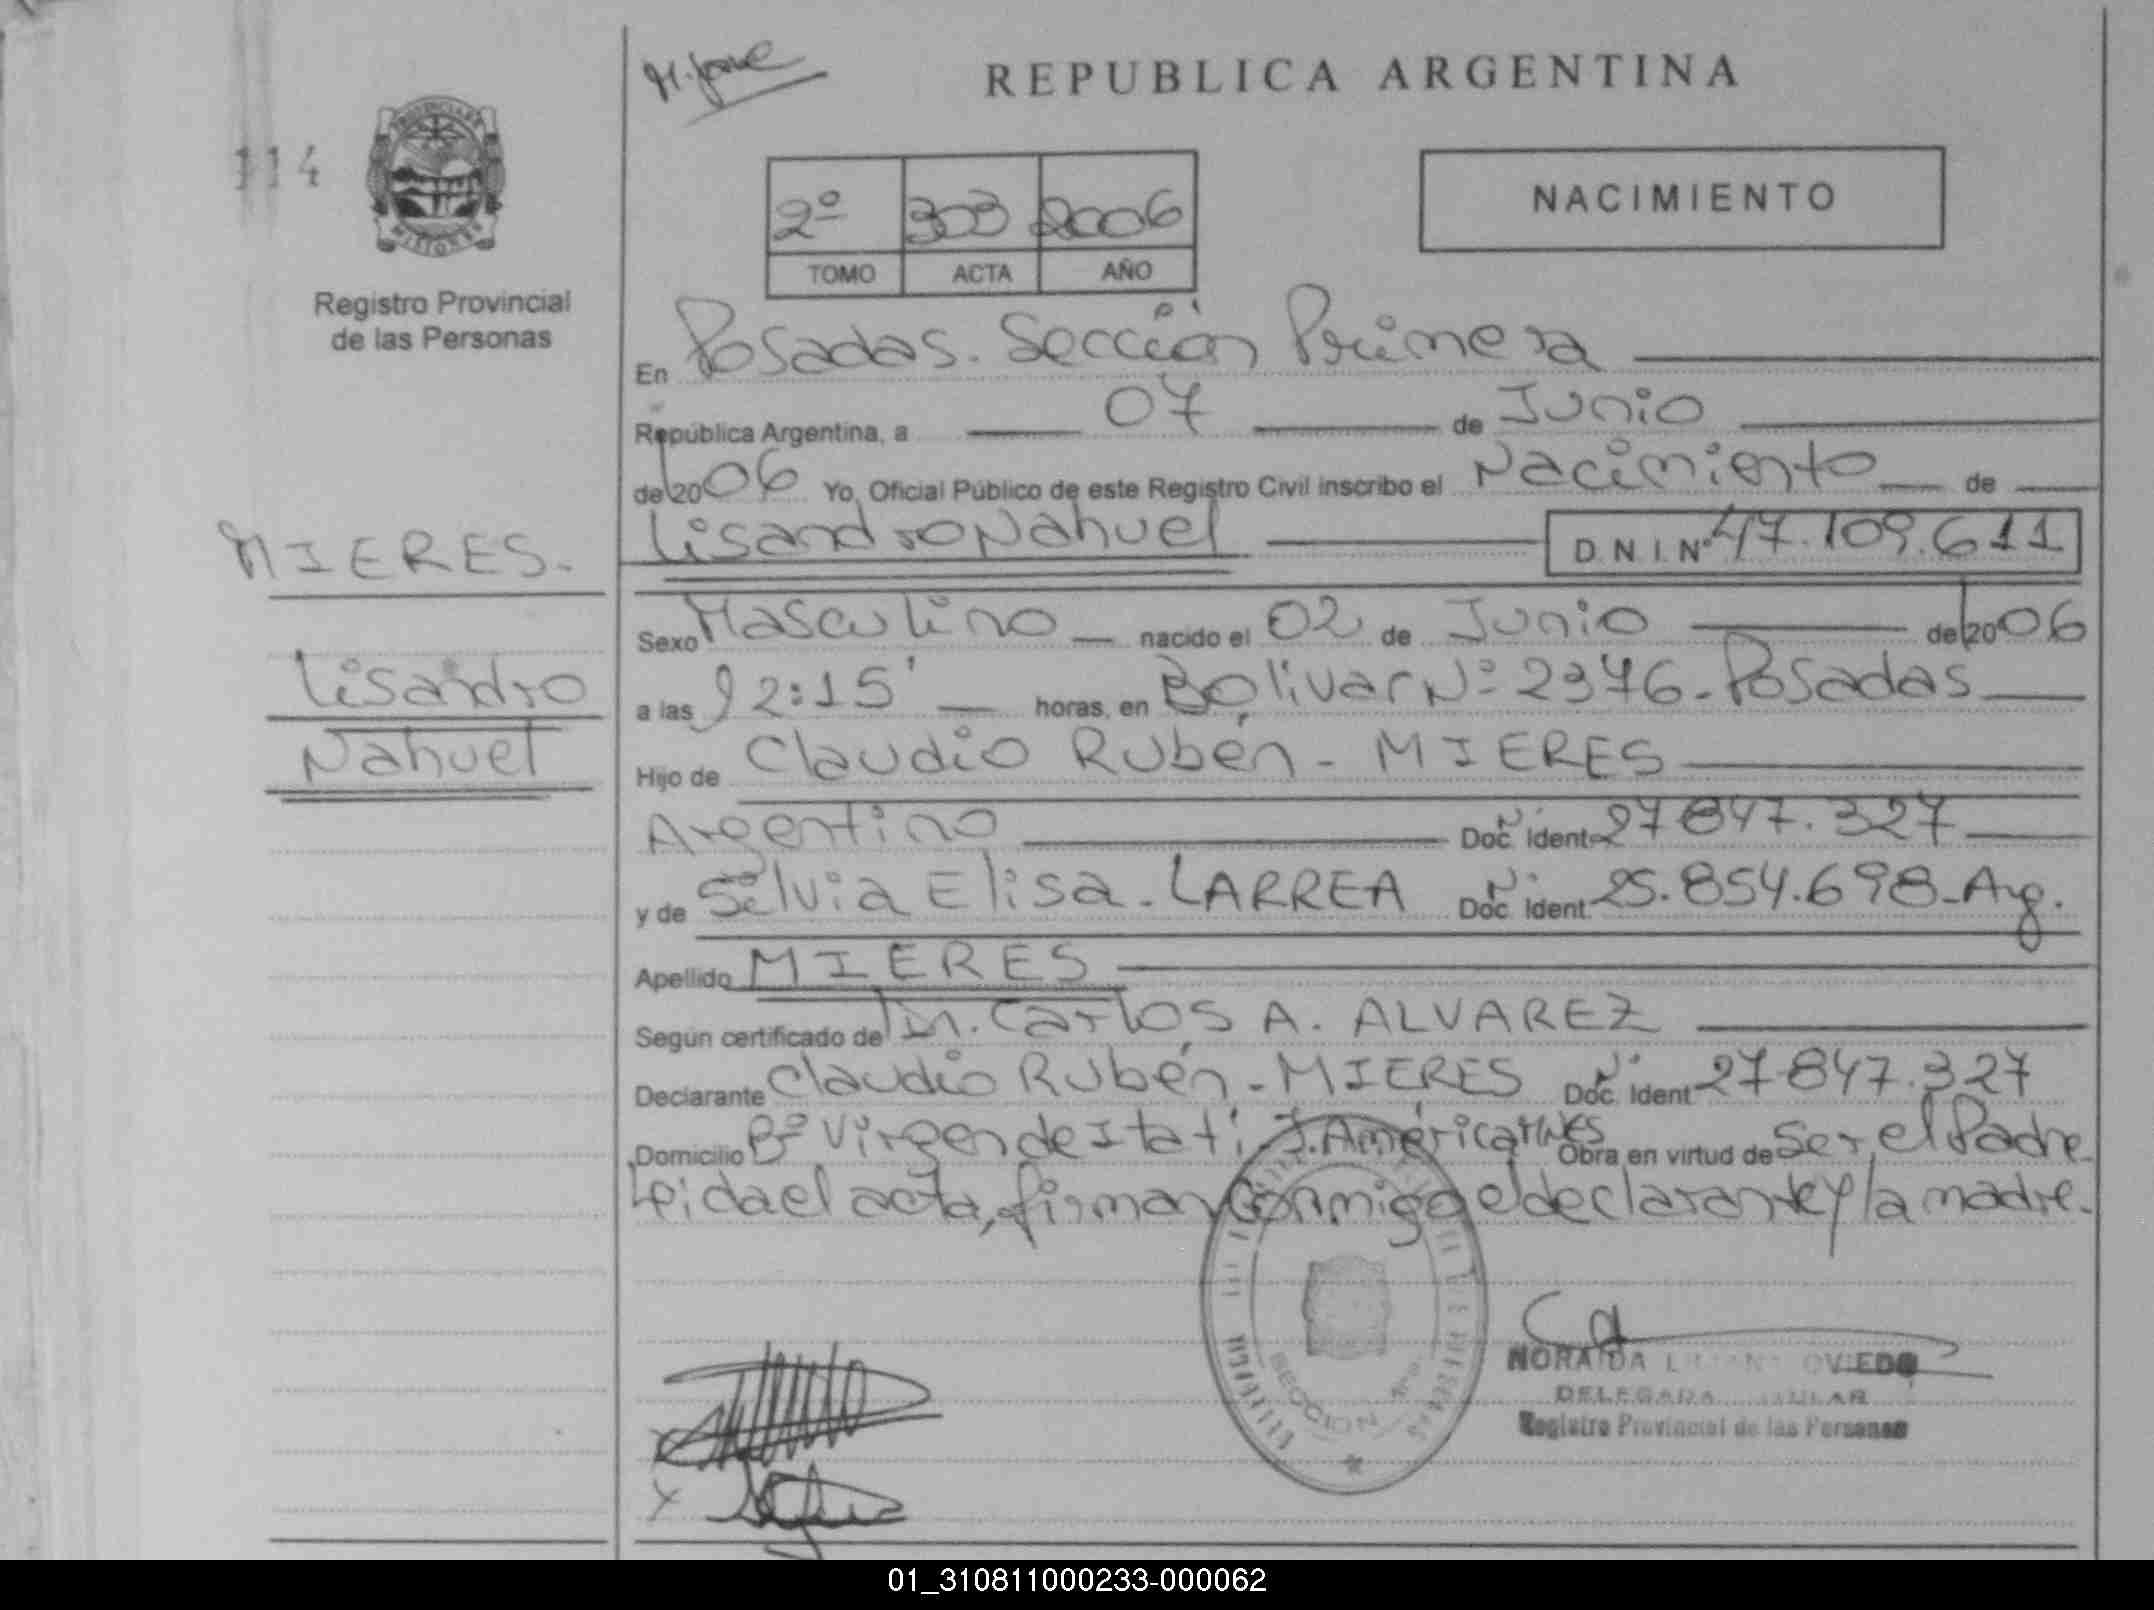 REPUBLICA ARGENTINA
114
PROVINCIA DE
MISIONES
Registro Provincial
de las Personas
2º 303 2006
TOMO ACTA AÑO
NACIMIENTO
En Posadas. Sección Primera
República Argentina, a 07 de Junio
de 2006 Yo, Oficial Público de este Registro Civil inscribo el Nacimiento de
MIERES.
Lisandro Nahuel D.N.I. Nº 47.109.611
Sexo Masculino nacido el 02 de Junio de 2006
Lisandro
a las 12:15' horas, en Bolivar Nº 2376. Posadas
Nahuel
Hijo de Claudio Rubén - MIERES
Argentino Doc. Ident. 27.847.327
y de Silvia Elisa. LARREA Doc. Ident. 25.854.698 - Arg.
Apellido MIERES
Según certificado de Dr. Carlos A. ALVAREZ
Declarante Claudio Rubén - MIERES Doc. Ident 27.847.327
Domicilio Bº Virgen de Itati, J. Américanas Obra en virtud de Ser, el Padre.
Leida el acta, firman Conmigo el declarante y la madre.
SECCION 1ra.
NORAIDA LILIANA OVIEDO
DELEGADA TITULAR
Registro Provincial de las Personas
X
01_310811000233-000062